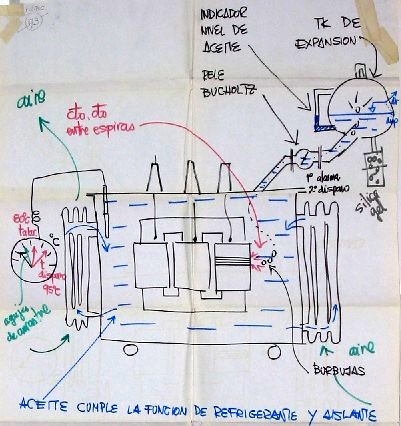 INDICADOR
NIVEL DE
ACEITE
TK DE
EXPANSION
RELE
BUCHOLTZ
aire
cto, cto
entre espiras
1º alarma
2º disparo
silica
gel
80º
ºC
disparo
95ºC
agujas
de arrastre
aire
BURBUJAS
ACEITE CUMPLE LA FUNCION DE REFRIGERANTE Y AISLANTE